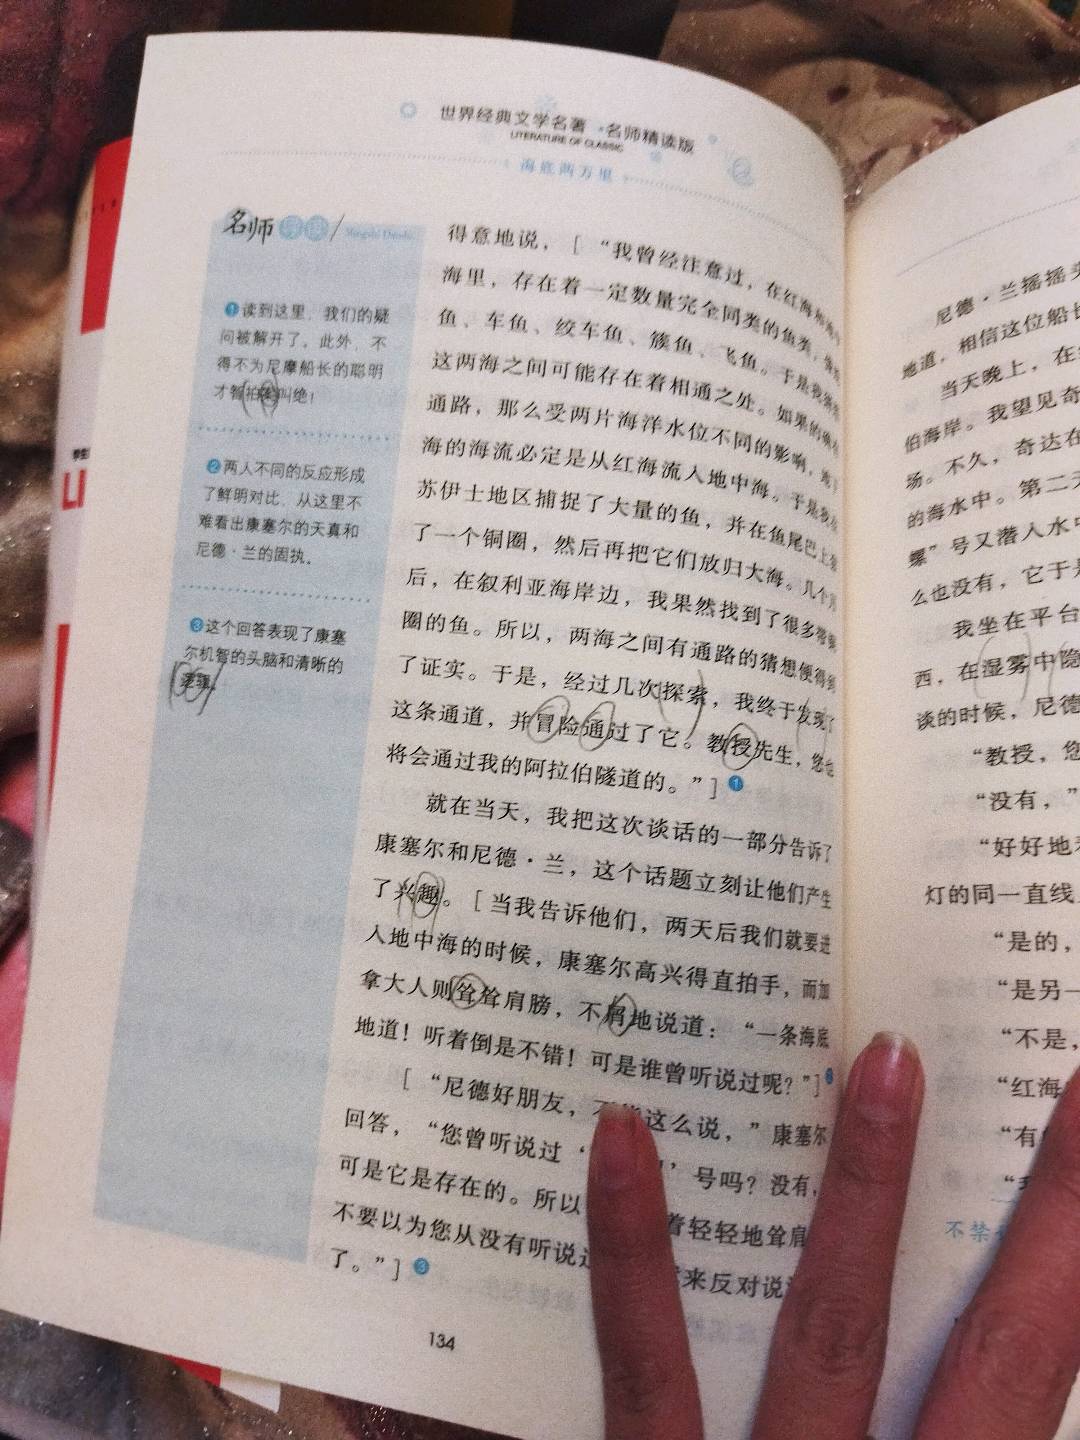 世界经典文学名著·名师精读版
LITERATURE OF CLASSIC
海底两万里
名师
❶读到这里，我们的疑
问被解开了。此外，不
得不为尼摩船长的聪明
才智拍案叫绝！
❷两人不同的反应形成
了鲜明对比，从这里不
难看出康塞尔的天真和
尼德·兰的固执。
❸这个回答表现了康塞
尔机智的头脑和清晰的
逻辑。
得意地说，［“我曾经注意过，在红海和
海里，存在着一定数量完全同类的鱼类，
鱼、车鱼、绞车鱼、簇鱼、飞鱼。于是我
这两海之间可能存在着相通之处。如果的确
通路，那么受两片海洋水位不同的影响，地
海的海流必定是从红海流入地中海。于是我
苏伊士地区捕捉了大量的鱼，并在鱼尾巴上
了一个铜圈，然后再把它们放归大海。几个月
后，在叙利亚海岸边，我果然找到了很多带
圈的鱼。所以，两海之间有通路的猜想便得到
了证实。于是，经过几次探索，我终于发现了
这条通道，并冒险通过了它。教授先生，您也
将会通过我的阿拉伯隧道的。”］❶
就在当天，我把这次谈话的一部分告诉了
康塞尔和尼德·兰，这个话题立刻让他们产生
了兴趣。［当我告诉他们，两天后我们就要进
入地中海的时候，康塞尔高兴得直拍手，而加
拿大人则耸耸肩膀，不屑地说道：“一条海底
地道！听着倒是不错！可是谁曾听说过呢？”］❷
［“尼德好朋友，这么说，”康塞尔
回答，“您曾听说过‘’号吗？没有，
可是它是存在的。所以着轻轻地耸肩
不要以为您从没有听说过来反对说
了。”］❸
134
尼德·兰摇摇头
地道，相信这位船长
当天晚上，在
伯海岸。我望见奇
场。不久，奇达在
的海水中。第二天
螺”号又潜入水中
么也没有，它于是
我坐在平台
西，在湿雾中隐
谈的时候，尼德
“教授，您
“没有，”
“好好地
灯的同一直线
“是的，
“是另一
“不是，
“红海
“有
不禁